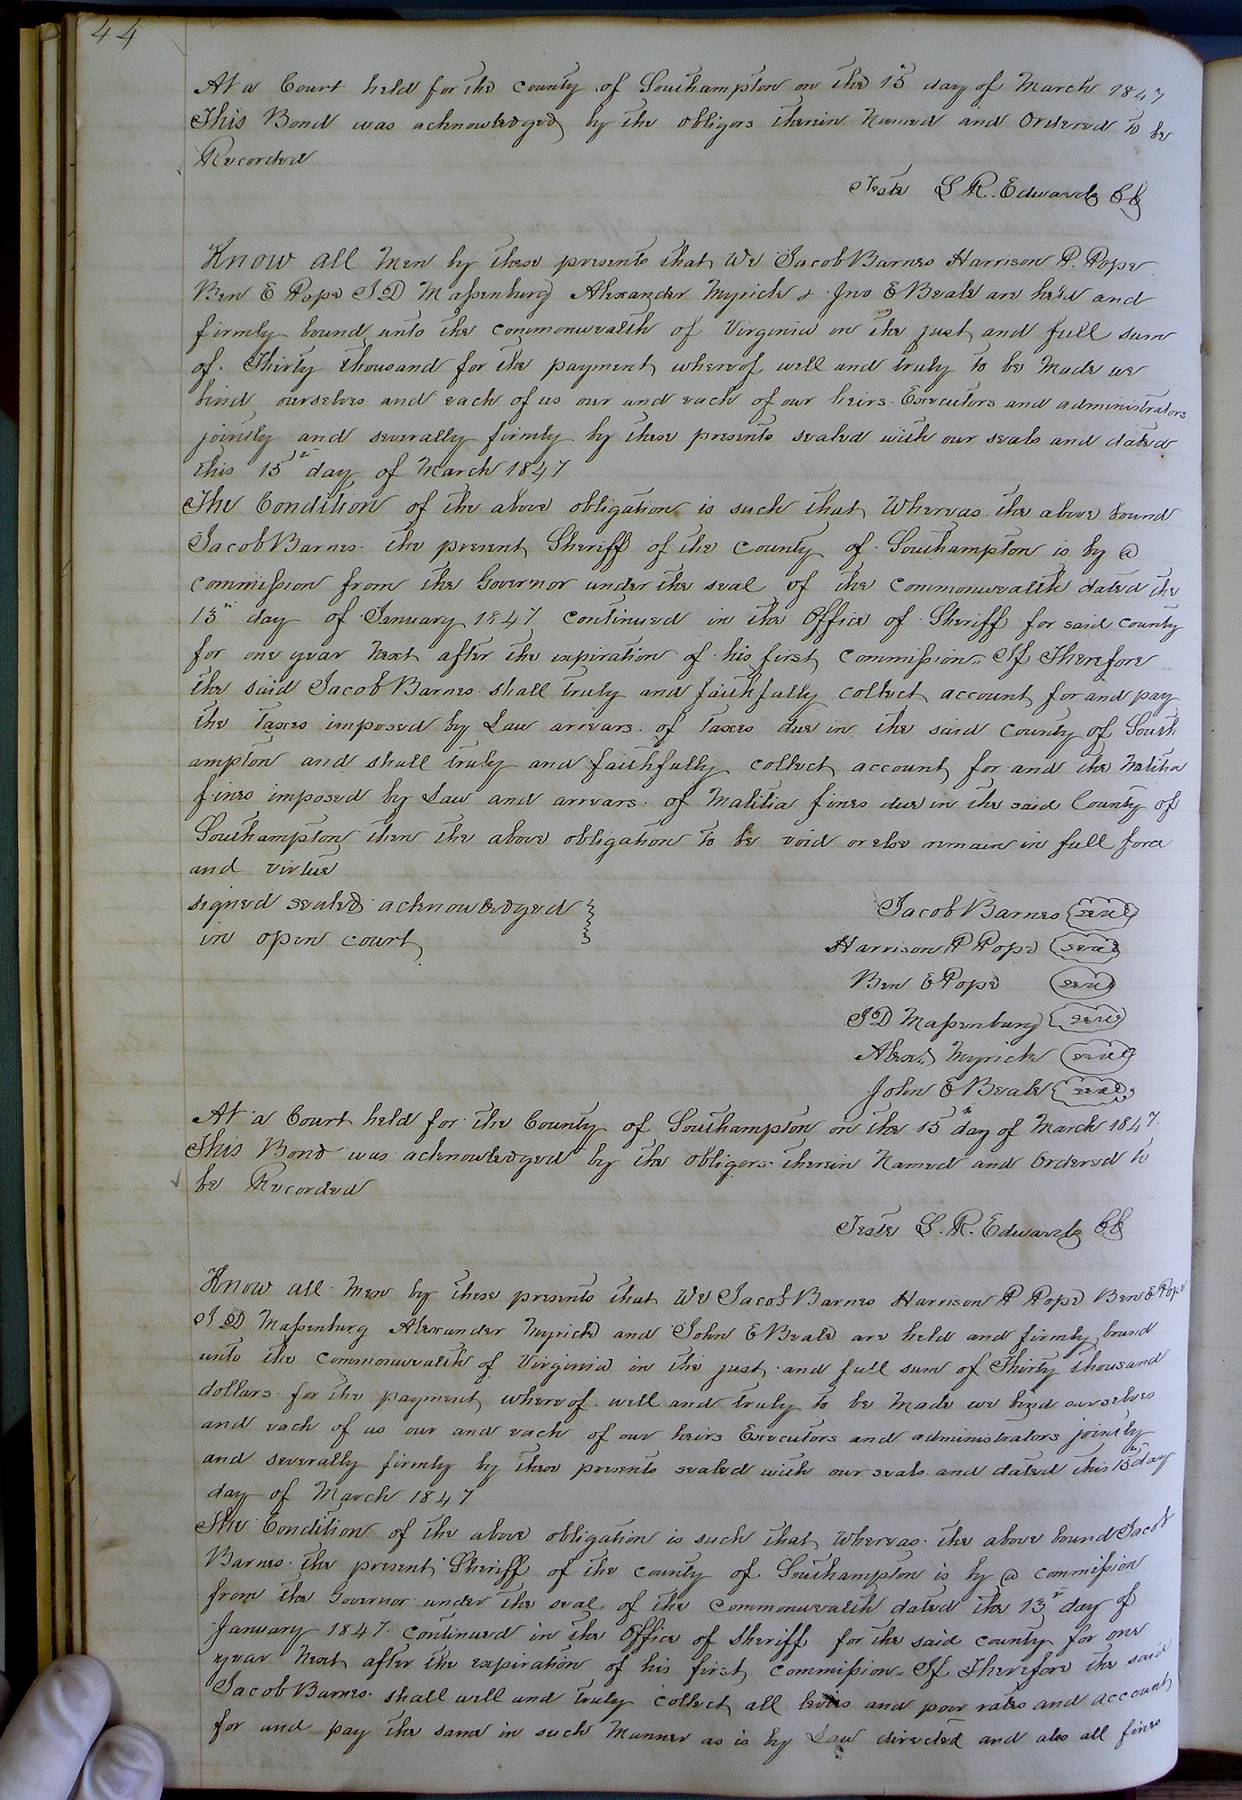 44
At a Court held for the county of Southampton on the 15 day of March 1847
This Bond was acknowledged by the obligors therein Named and Ordered to be
Recorded
Teste L. R. Edwards CC
Know all Men by these presents that We Jacob Barnes Harrison P. Pope
Ben E Pope J D Massenburg Alexander Myrick & Jno E Beale are held and
firmly bound unto the commonwealth of Virginia in the just and full sum
of Thirty thousand for the payment whereof well and truly to be Made we
bind ourselves and each of us our and each of our heirs Executors and administrators
jointly and severally firmly by these presents sealed with our seals and dated
this 15th day of March 1847
The Condition of the above obligation is such that Whereas the above bound
Jacob Barnes the present Sheriff of the county of Southampton is by a
commission from the Governor under the seal of the commonwealth dated the
13th day of January 1847 continued in the Office of Sheriff for said county
for one year Next after the expiration of his first commission. If Therefore
the said Jacob Barnes shall truly and faithfully collect account for and pay
the Taxes imposed by Law arrears of Taxes due in the said County of South
ampton and shall truly and faithfully collect account for and the Malitia
fines imposed by Law and arrears of Malitia fines due in the said County of
Southampton then the above obligation to be void or else remain in full force
and virtue
signed sealed acknowledged
in open court
Jacob Barnes seal
Harrison P Pope seal
Ben E Pope seal
J D Massenburg seal
Alexr Myrick seal
John E Beale seal
At a Court held for the County of Southampton on the 15th day of March 1847
This Bond was acknowledged by the obligors therein Named and Ordered to
be Recorded
Teste L. R. Edwards CC
Know all Men by these presents that We Jacob Barnes Harrison P Pope Ben E Pope
J D Massenburg Alexander Myrick and John E Beale are held and firmly bound
unto the commonwealth of Virginia in the just and full sum of Thirty thousand
dollars for the payment whereof well and truly to be Made we bind ourselves
and each of us our and each of our heirs Executors and administrators jointly
and severally firmly by these presents sealed with our seals and dated this 15th day
day of March 1847
The Condition of the above obligation is such that Whereas the above bound Jacob
Barnes the present Sheriff of the county of Southampton is by a commission
from the Governor under the seal of the commonwealth dated the 13th day of
January 1847 continued in the Office of Sheriff for the said county for one
year Next after the expiration of his first commission. If Therefore the said
Jacob Barnes shall well and truly collect all levies and poor rates and account
for and pay the same in such Manner as is by Law directed and also all fines